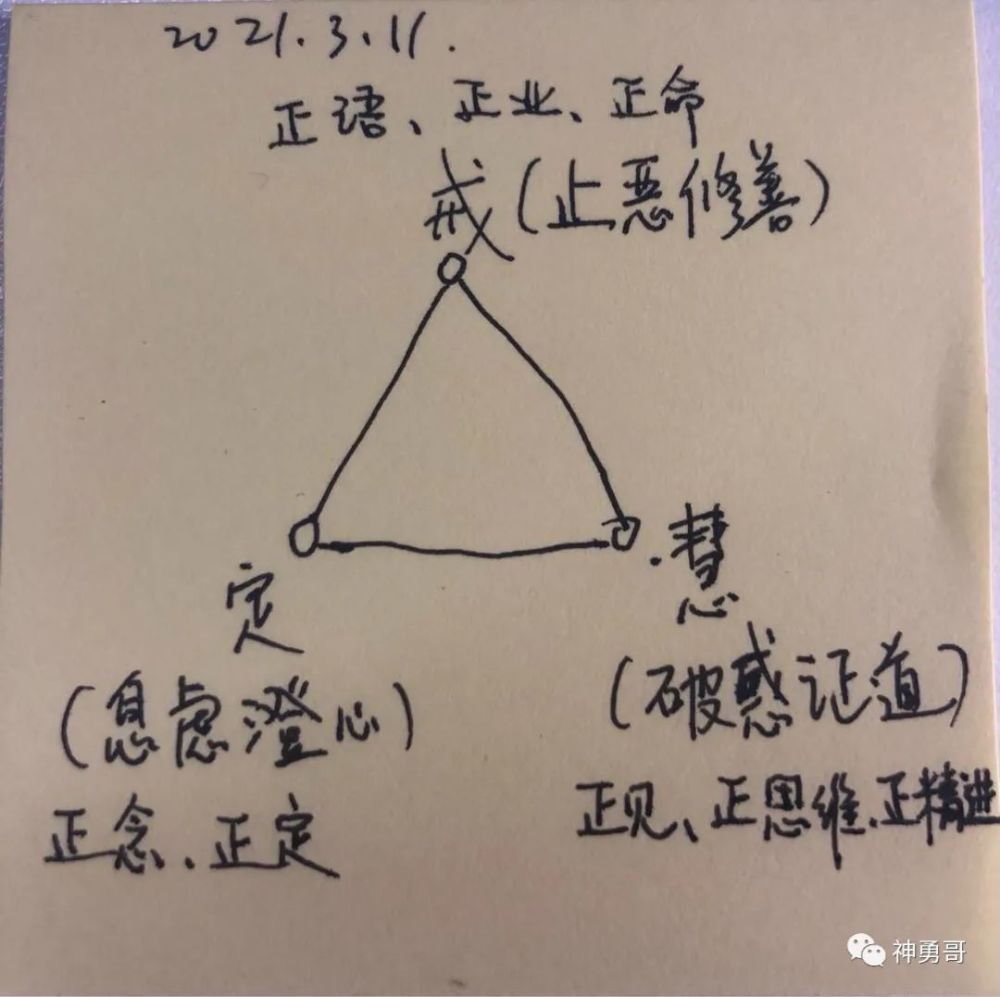 2021.3.11.
正语、正业、正命
戒(止恶修善)
定
·慧
(息虑澄心)
(破惑证道)
正念、正定
正见、正思维、正精进
神勇哥